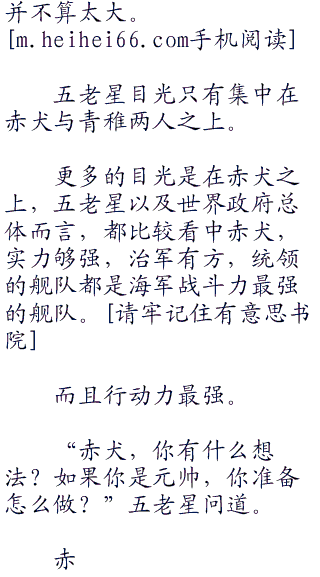 并不算太大。
[m.heihei66.com手机阅读]
五老星目光只有集中在
赤犬与青稚两人之上。
更多的目光是在赤犬之
上，五老星以及世界政府总
体而言，都比较看中赤犬，
实力够强，治军有方，统领
的舰队都是海军战斗力最强
的舰队。[请牢记住有意思书
院]
而且行动力最强。
“赤犬，你有什么想
法？如果你是元帅，你准备
怎么做？”五老星问道。
赤